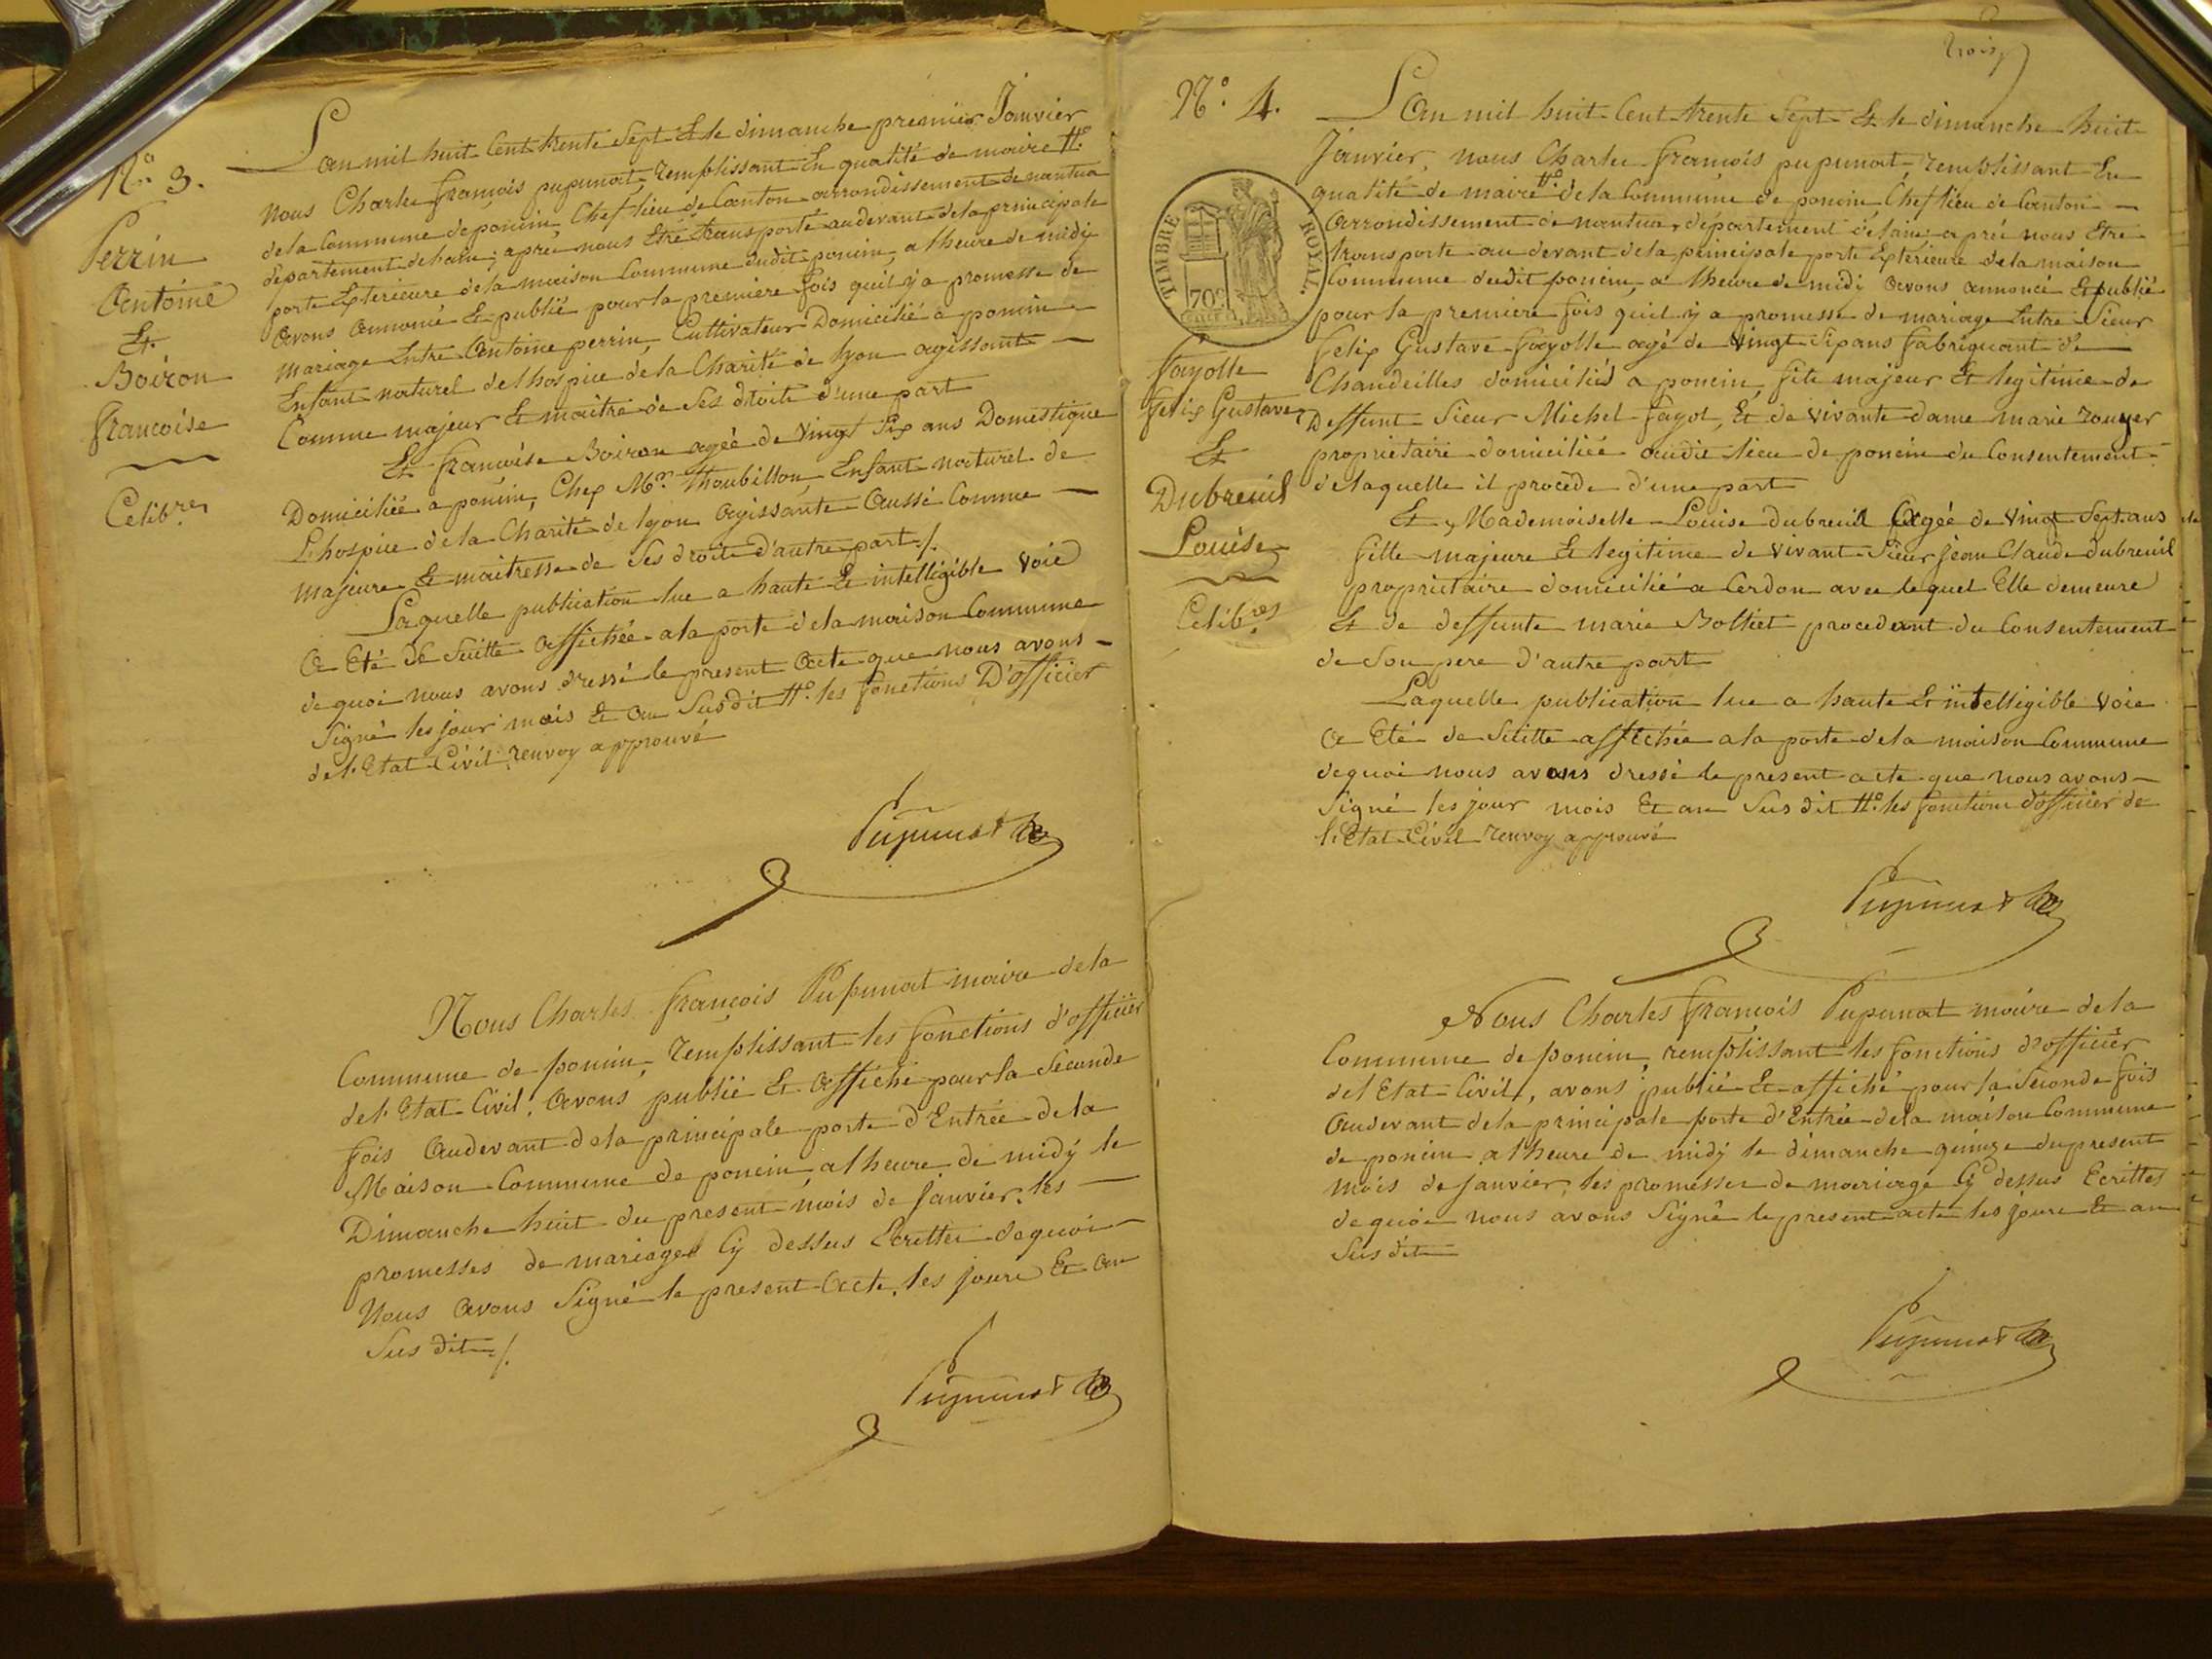 N.° 3.
Perrin
Antoine
Et
Boiron
francoise
Celib.res
L'an mil huit Cent trente Sept Et le dimanche premier Janvier
nous Charles françois pupunat, remplissant En qualité de maire #.
dela Commune deponcin, Chef lieu de Canton arrondissement de nantua
département delain; aprés nous Etre transporté audevant dela principale
porte Exterieure dela maison Commune dudit poncin, a lheure de midy
avons annoncé Et publié pour la premiere fois quil y a promesse de
mariage Entre Antoine perrin, Cultivateur Domicilié a poncin
Enfant naturel de lhospice de la Charité de lyon agissant
Comme majeur Et maitre de Ses droits d'une part
Et françoise Boiron agée de vingt Six ans Domestique
Domiciliée a poncin, Chez M.r Thoubillon Enfant naturel de
L'hospice de la Charité de lyon agissante Aussi Comme
majeure Et maitresse de Ses droits d'autre part ./.
Laquelle publication lue a haute Et intelligible voie
a Eté de Suitte affichée ala porte dela maison Commune
dequoi nous avons dressé le present acte que nous avons
Signé les jour mois Et an Susdit #. les fonctions D'officier
de l'Etat Civil renvoy approuvé
Pupunat
Nous Charles françois Pupunat maire dela
Commune de poncin, remplissant les fonctions d'officier
del'Etat Civil, avons publié Et affiché pour la Seconde
fois Audevant dela principale porte d'Entrée dela
Maison Commune de poncin a lheure de midy le
Dimanche huit du present mois de janvier, les
promesses de mariages Cy dessus Ecrittes dequoi
nous avons Signé le present acte, les jours Et an
Sus dit ./.
Pupunat
trois
N.° 4.
TIMBRE ROYAL.
70c
Fayolle
felix Gustave
Et
Dubreuil
Louise
Celib.res
L'an mil huit Cent trente Sept Et le dimanche huit
Janvier, nous Charles françois pupunat, remplissant En
qualité de maire #. de la Commune de poncin, Chef lieu de Canton
arrondissement de nantua, département delain aprés nous Etre
transporte au devant dela principale porte Exterieure dela maison
Commune dudit poncin, a lheure de midy avons annoncé Et publié
pour la premiere fois quil y a promesse de mariage Entre Sieur
felix Gustave fayolle agé de vingt Six ans fabriquant de
Chandelles domicilié a poncin, fils majeur Et legitime de
Deffunt Sieur Michel fayol, Et de vivante dame marie rouyer
propriétaire domiciliée audit lieu de poncin du Consentement
delaquelle il procède d'une part
Et Mademoiselle Louise dubreuil Agée de vingt Sept ans
fille majeure Et legitime de vivant Sieur jean Claude dubreuil
proprietaire domicilié a Cerdon avec lequel Elle demeure
Et de deffunte marie Bolliet procedant du Consentement
de Son pere d'autre part
Laquelle publication lue a haute Et intelligible voie
a Eté de Suitte affichée a la porte dela maison Commune
dequoi nous avons dressé le present acte que nous avons
Signé les jour mois Et an Sus dit #. les fonctions d'officier de
l'Etat Civil renvoy approuvé
Pupunat
Nous Charles françois Pupunat maire de la
Commune de poncin, remplissant les fonctions d'officier
del'Etat Civil, avons publié Et affiché pour la Seconde fois
Audevant dela principale porte d'Entrée dela maison Commune
de poncin a l'heure de midy le dimanche quinze dupresent
mois de janvier, les promesses de mariage Cy dessus Ecrittes
de quoi nous avons Signé le present acte les jours Et an
Sus dit
Pupunat